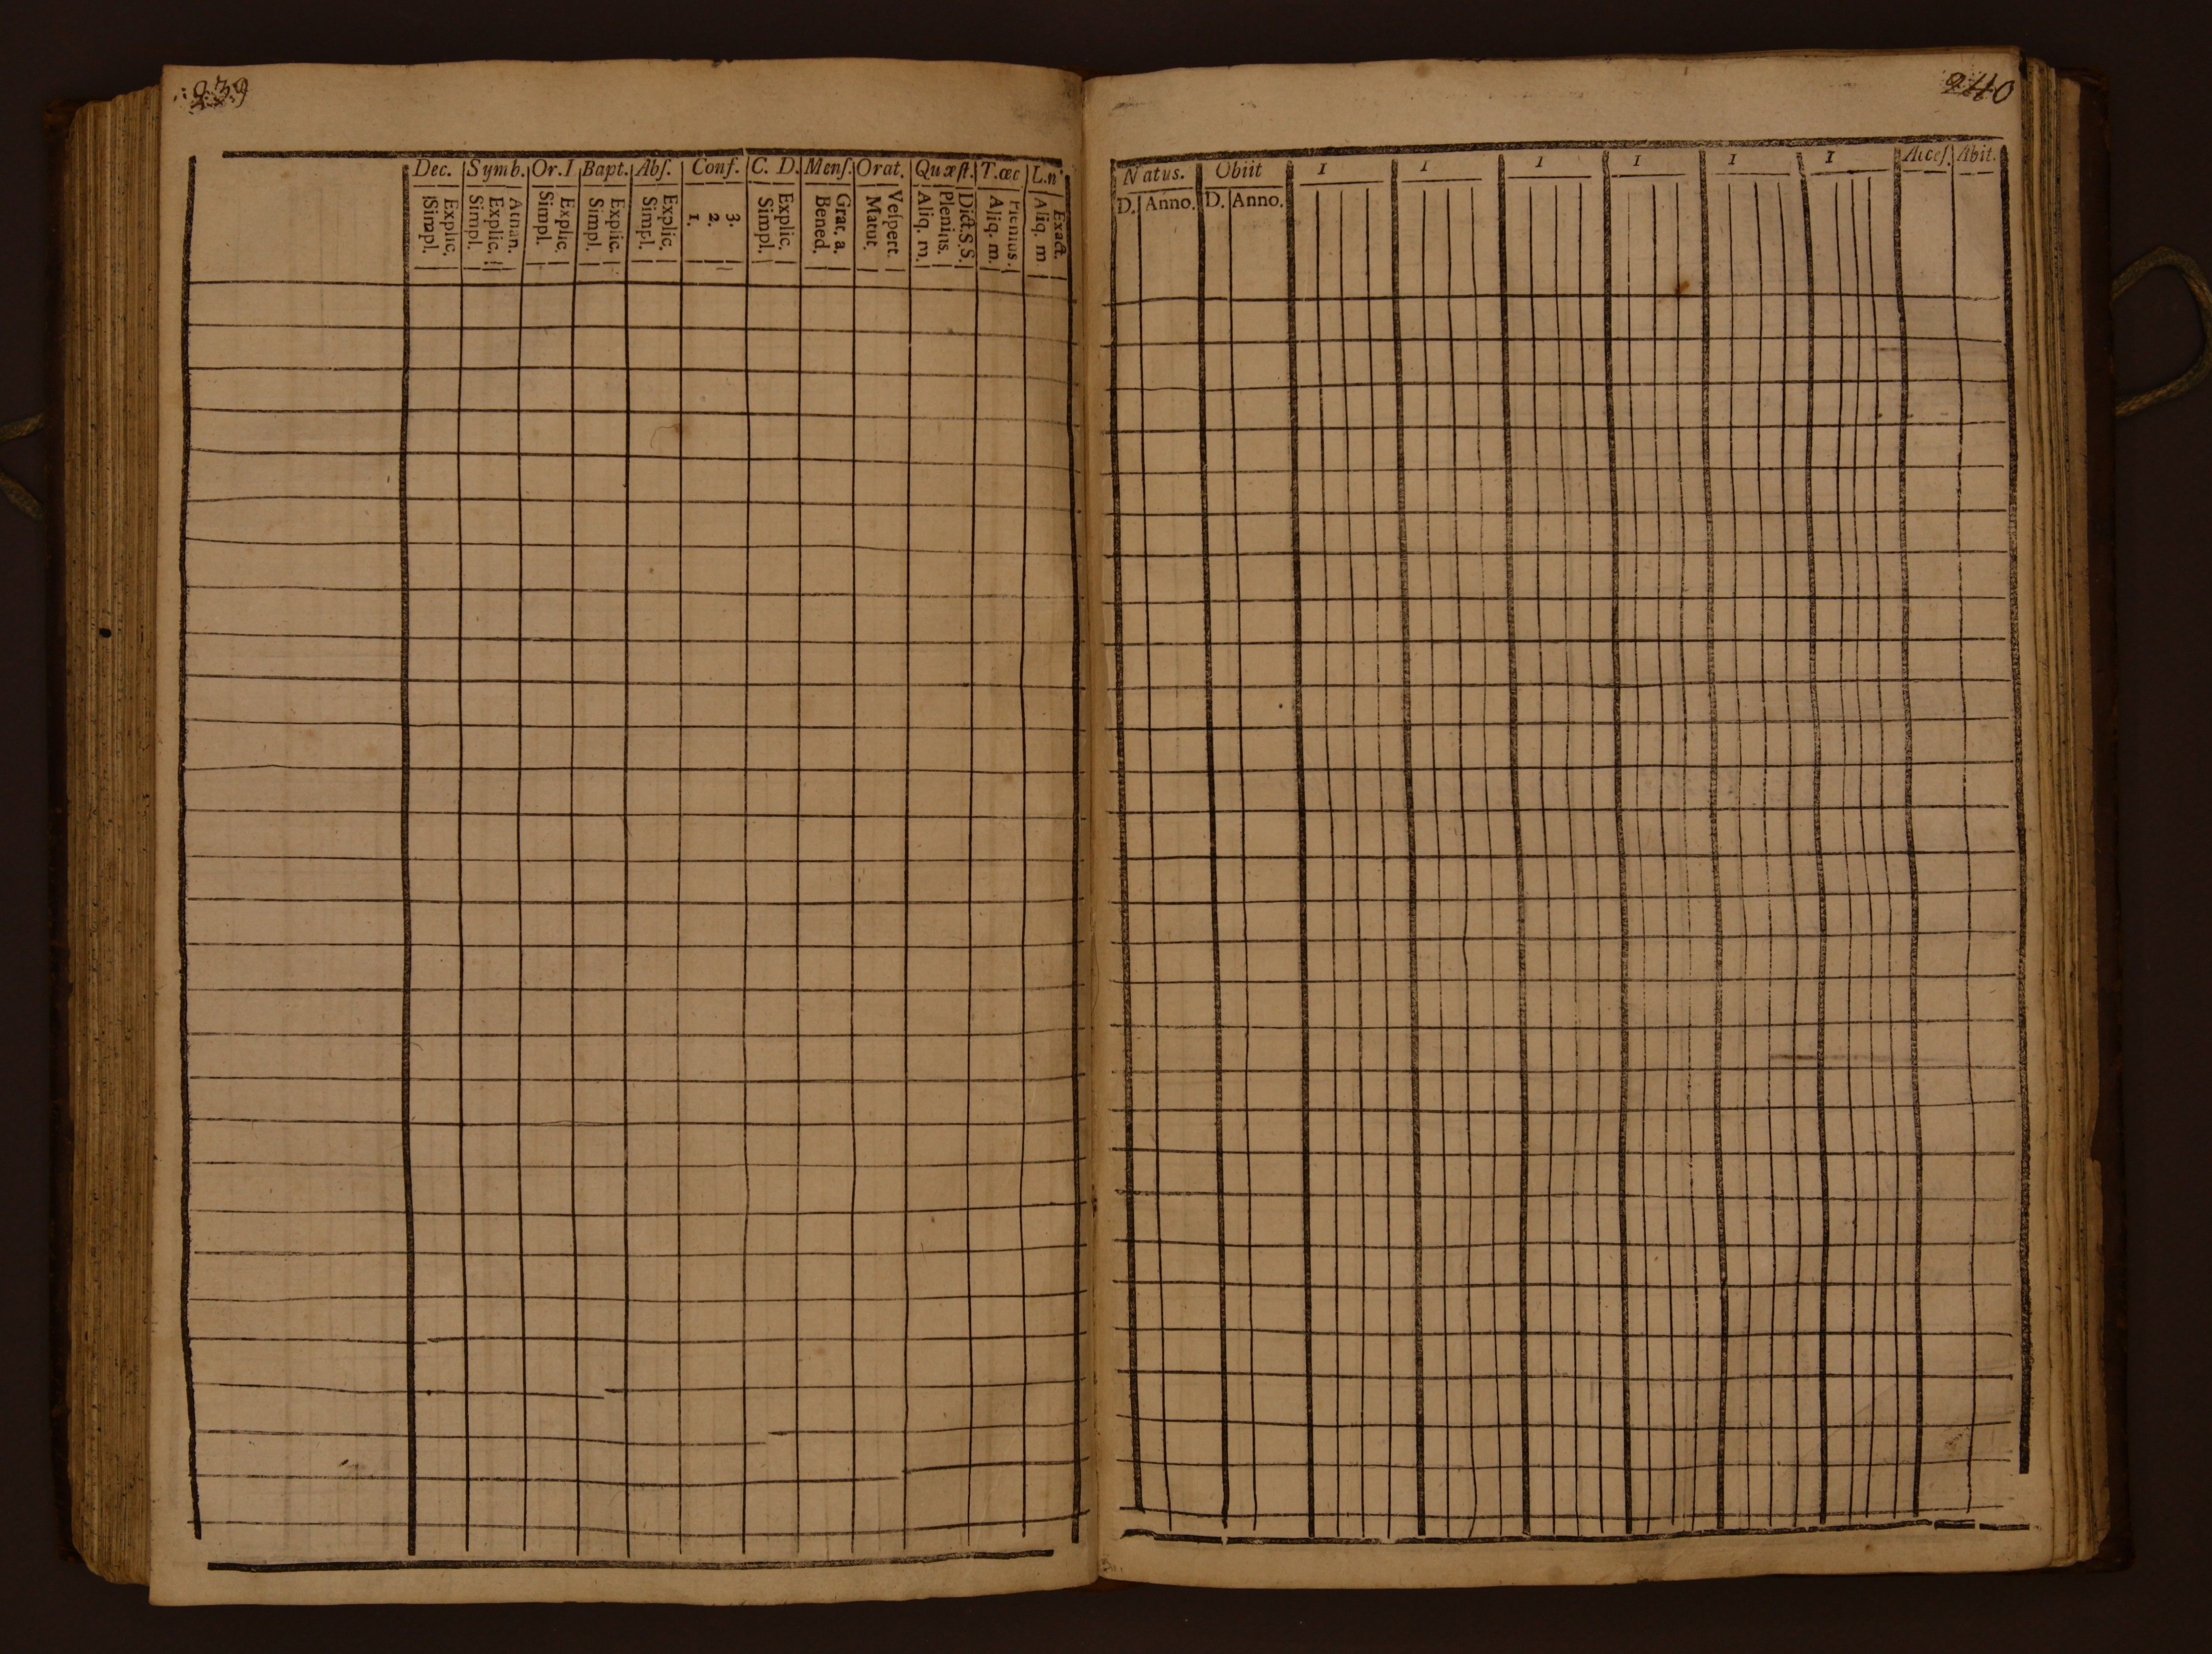 239
Dec. Symb. Or.I Bapt. Abſ. Conf. C. D. Menſ. Orat. Quæſt. T.œc L.n
Simpl. Explic.
Simpl. Explic. Athan.
Simpl. Explic.
Simpl. Explic.
Simpl. Explic.
1. 2. 3.
Simpl. Explic.
Bened. Grat. a.
Matut. Veſpert.
Aliq. m. Plenius. Dict.S.S.
Aliq. m. Plenius.
Aliq. m Exact.
240
Natus. Obiit 1 1 1 1 1 1 Acceſ. Abit.
D. Anno. D. Anno.